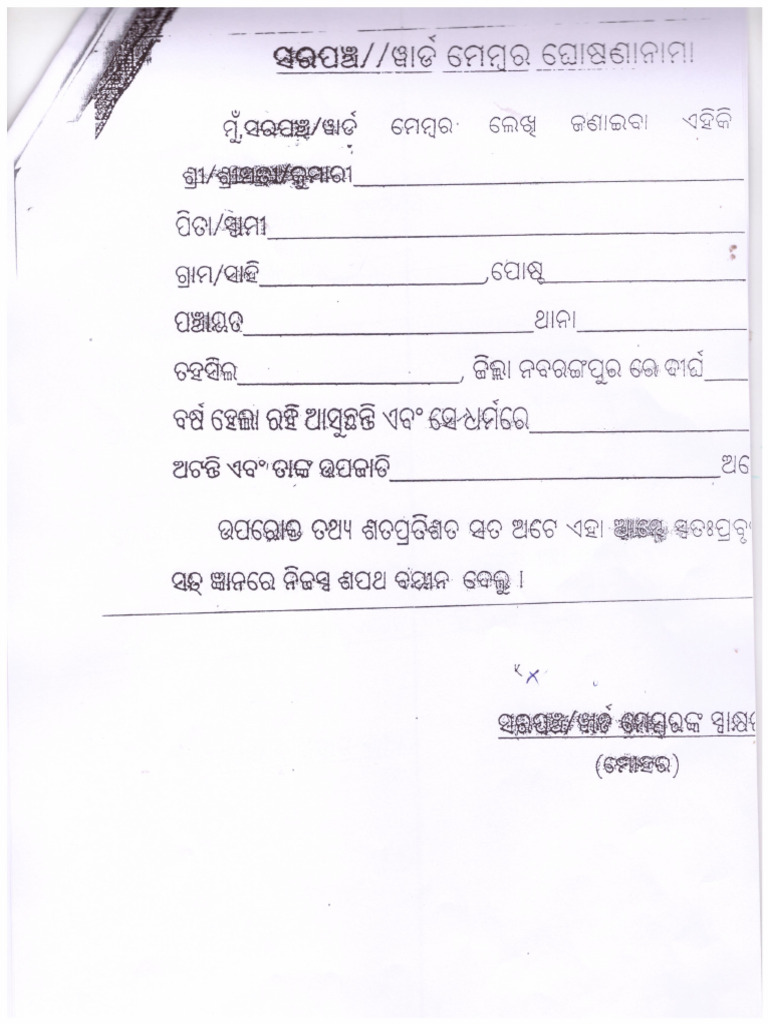 ସରପଞ୍ଚ//ୱାର୍ଡ ମେମ୍ବର ଘୋଷଣାନାମା
ମୁଁ,ସରପଞ୍ଚ/ୱାର୍ଡ ମେମ୍ବର ଲେଖି ଜଣାଇବା ଏହିକି
ଶ୍ରୀ/ଶ୍ରୀମତୀ/କୁମାରୀ
ପିତା/ସ୍ୱାମୀ
ଗ୍ରାମ/ସାହି ,ପୋଷ୍ଟ
ପଞ୍ଚାୟତ ଥାନା
ତହସିଲ , ଜିଲ୍ଲା ନବରଙ୍ଗପୁର ରେ ଦୀର୍ଘ
ବର୍ଷ ହେଲା ରହି ଆସୁଛନ୍ତି ଏବଂ ସେ ଧର୍ମରେ
ଅଟନ୍ତି ଏବଂ ତାଙ୍କ ଉପଜାତି
ଉପରୋକ୍ତ ତଥ୍ୟ ଶତପ୍ରତିଶତ ସତ ଅଟେ ଏହା
ସତ୍ ଜ୍ଞାନରେ ନିଜସ୍ୱ ଶପଥ ବୟାନ ଦେଲୁ ।
ସରପଞ୍ଚ/ୱାର୍ଡ ମେମ୍ବରଙ୍କ
(ମୋହର)